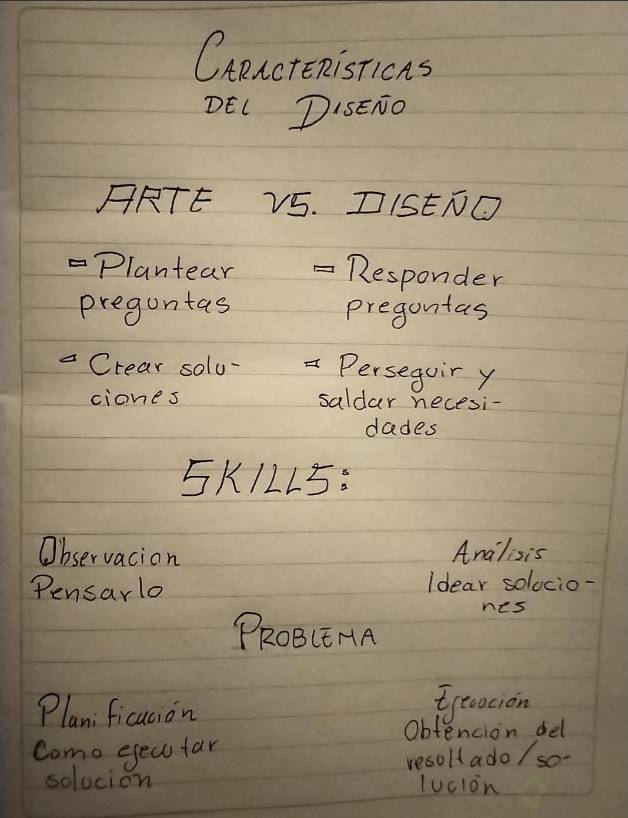 CARACTERÍSTICAS
DEL DISEÑO
ARTE VS. DISEÑO
- Plantear
preguntas
- Responder
preguntas
- Crear solu-
ciones
- Perseguir y
saldar necesi-
dades
SKILLS:
Observacion
Pensarlo
Análisis
Idear solucio-
nes
PROBLEMA
Planificación
Como ejecutar
solución
Ejecución
Obtención del
resultado/so-
lución